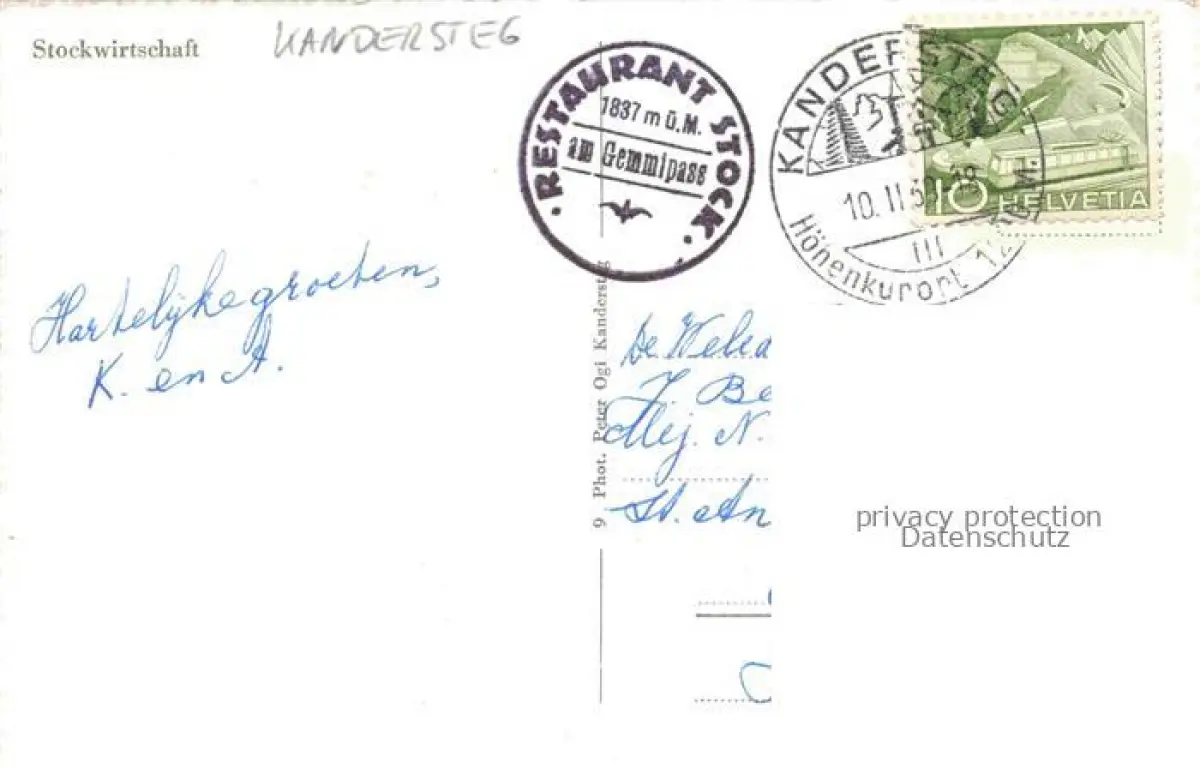 Stockwirtschaft
KANDERSTEG
RESTAURANT STOCK
1837 m ü. M.
am Gemmipass
KANDERSTEG
10. II 5
III
Höhenkurort 12 M.
10 HELVETIA
Hartelijke groeten,
K. en A.
9 Phot. Peter Ogi Kandersteg
De Weled
J. Be
Mej. N.
St. An
privacy protection
Datenschutz